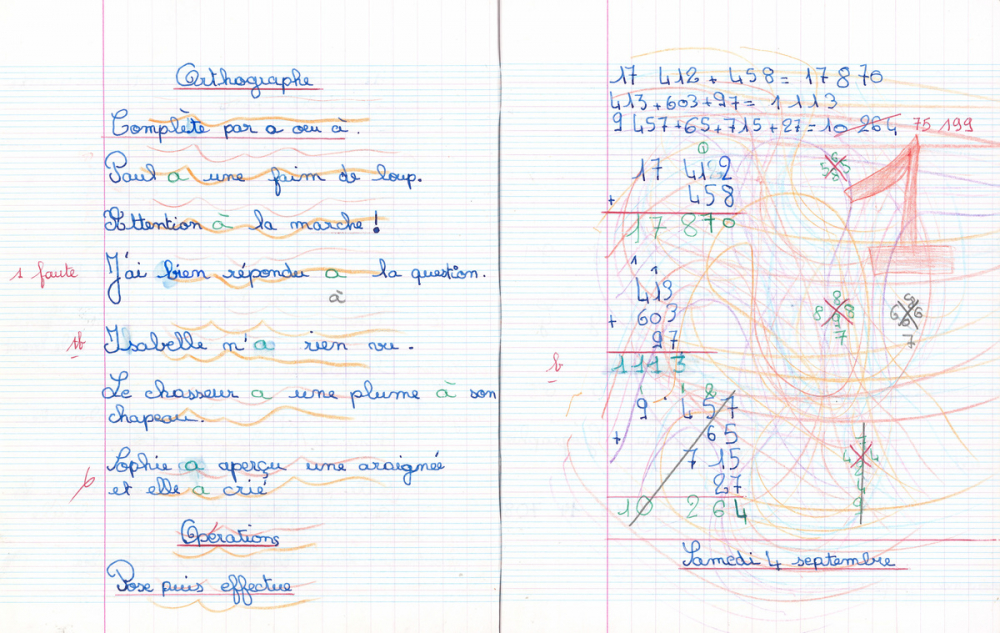 Orthographe
Complète par a ou à.
Paul a une faim de loup.
Attention à la marche !
1 faute J'ai bien répondu a la question.
à
tb Isabelle n'a rien vu.
Le chasseur a une plume à son
chapeau.
Sophie a aperçu une araignée
b et elle a crié
Opérations
Pose puis effectue
17 412 + 458 = 17 870
413 + 603 + 97 = 1 113
9 457 + 65 + 715 + 27 = 10 264 75 199
1
17 412
+ 458
17 870
1 1
413
+ 603
97
b 1113
9 457
+ 65
715
27
10 264
Samedi 4 septembre